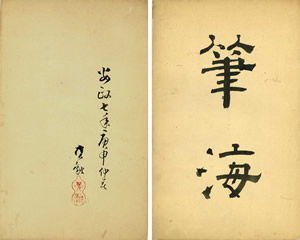 筆海
安政七年庚申仲春